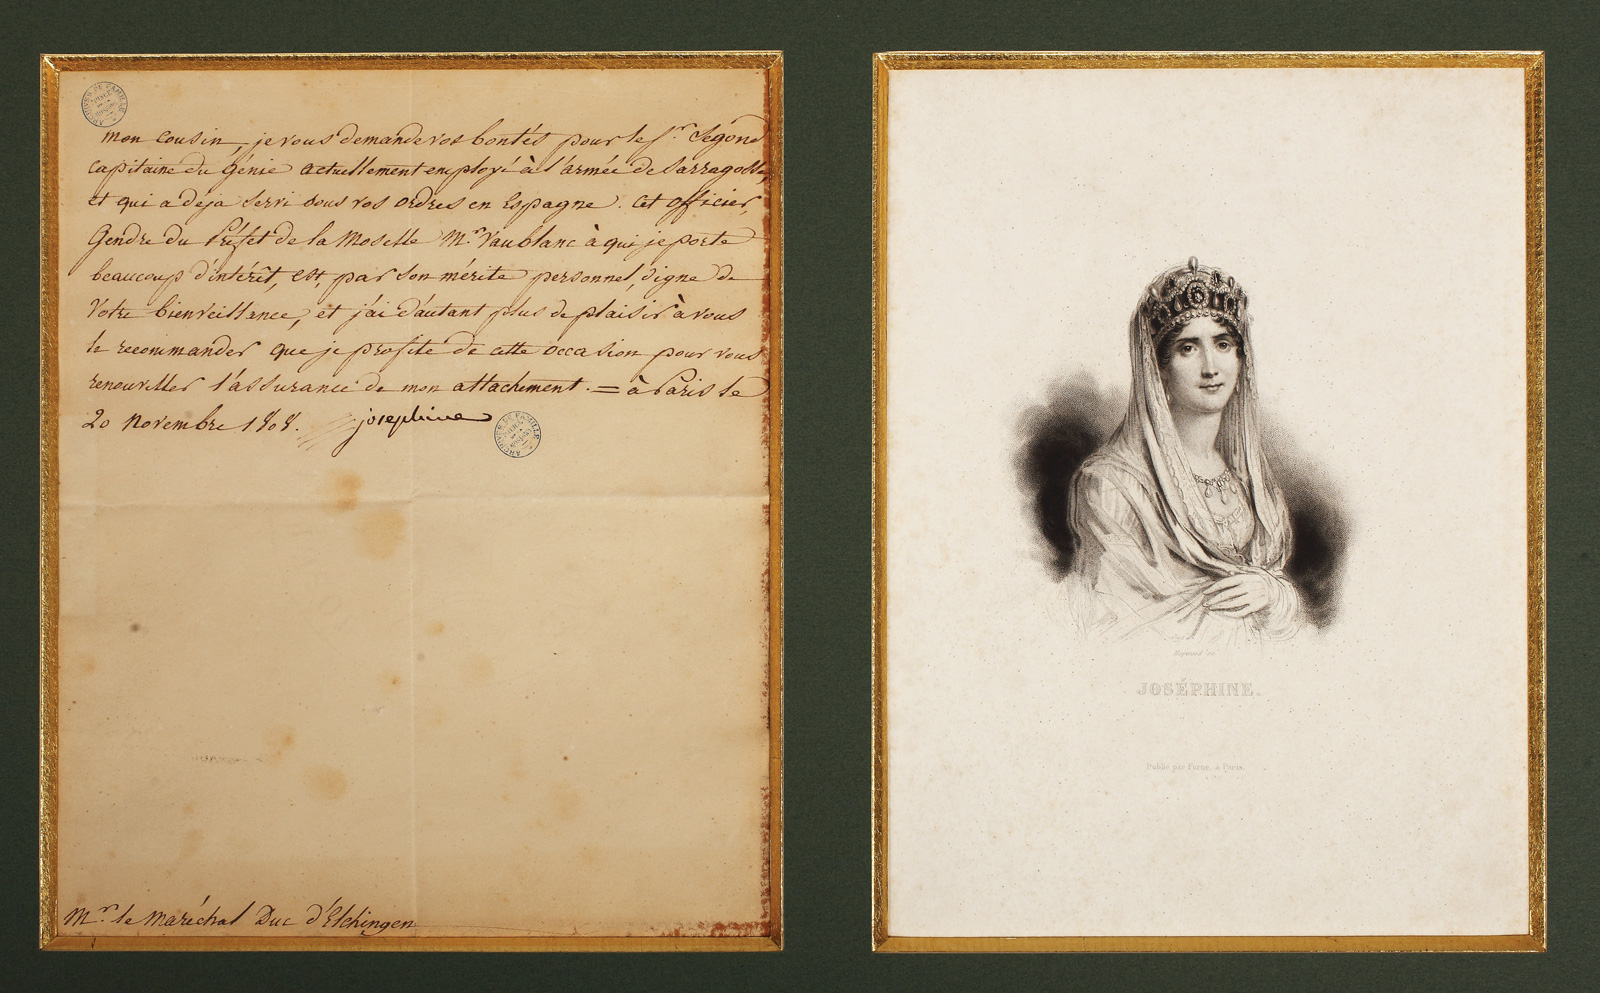 mon cousin, je vous demande vos bontés pour le Sr. Segond
capitaine du Génie actuellement employé à l'armée de Sarragosse,
et qui a deja servi sous vos ordres en Espagne. Cet officier,
Gendre du Préfet de la Moselle Mr. Vaublanc à qui je porte
beaucoup d'intérêt, est, par son mérite personnel, digne de
Votre bienveillance, et j'ai d'autant plus de plaisir à vous
le recommander que je profite de cette occasion pour vous
renouveller l'assurance de mon attachement. = à Paris le
20 Novembre 1808. josephine
ARCHIVES DE FAMILLE
ARCHIVES DE FAMILLE
Mr. le Maréchal Duc d'Elchingen
JOSÉPHINE.
Publié par Furne, à Paris.